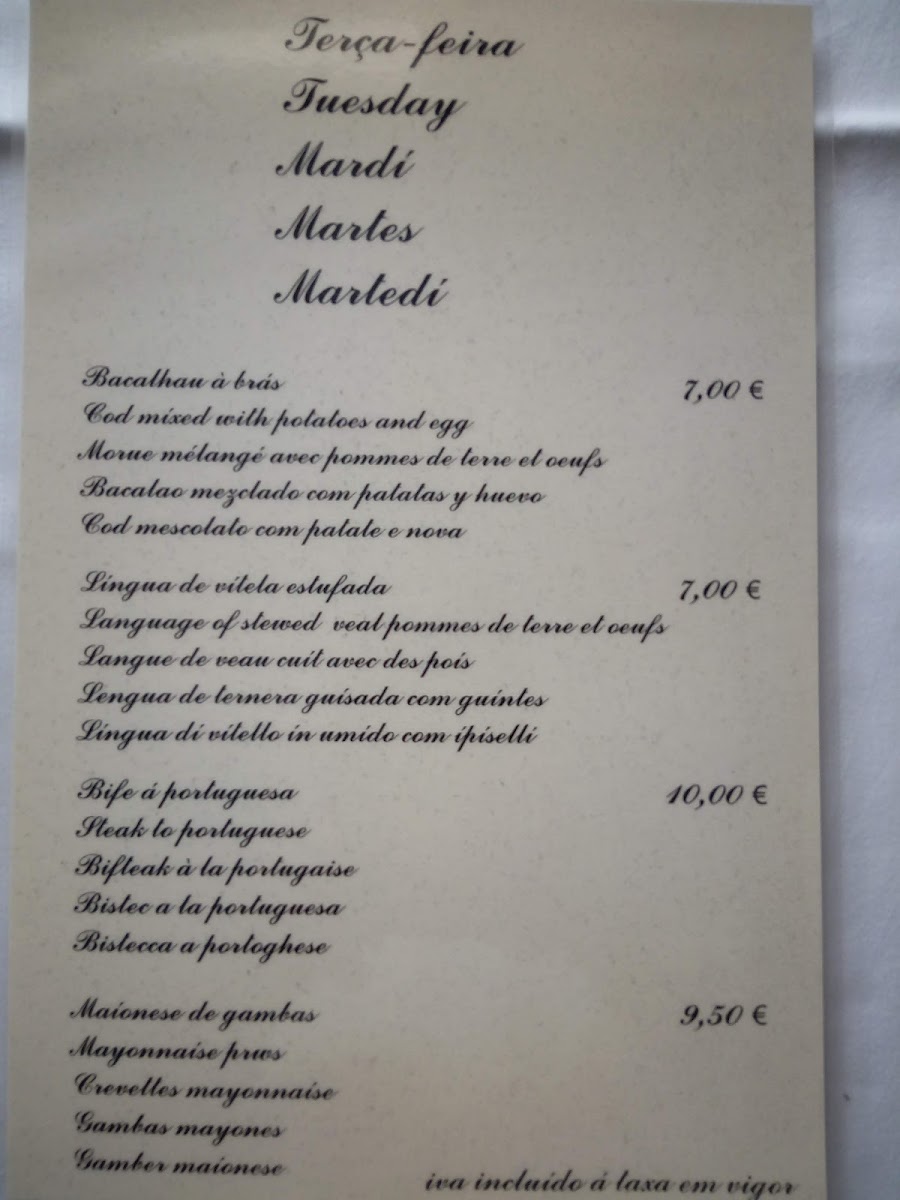 Terça-feira
Tuesday
Mardi
Martes
Martedi
Bacalhau à brás 7,00 €
Cod mixed with potatoes and egg
Morue mélangé avec pommes de terre et oeufs
Bacalao mezclado com patatas y huevo
Cod mescolato com patate e nova
Língua de vitela estufada 7,00 €
Language of stewed veal pommes de terre et oeufs
Langue de veau cuit avec des pois
Lengua de ternera guisada com guintes
Língua di vitello in umido com ipiselli
Bife á portuguesa 10,00 €
Steak to portuguese
Bifteak à la portugaise
Bistec a la portuguesa
Bistecca a portoghese
Maionese de gambas 9,50 €
Mayonnaise prws
Crevettes mayonnaise
Gambas mayones
Gamber maionese
iva incluído á taxa em vigor